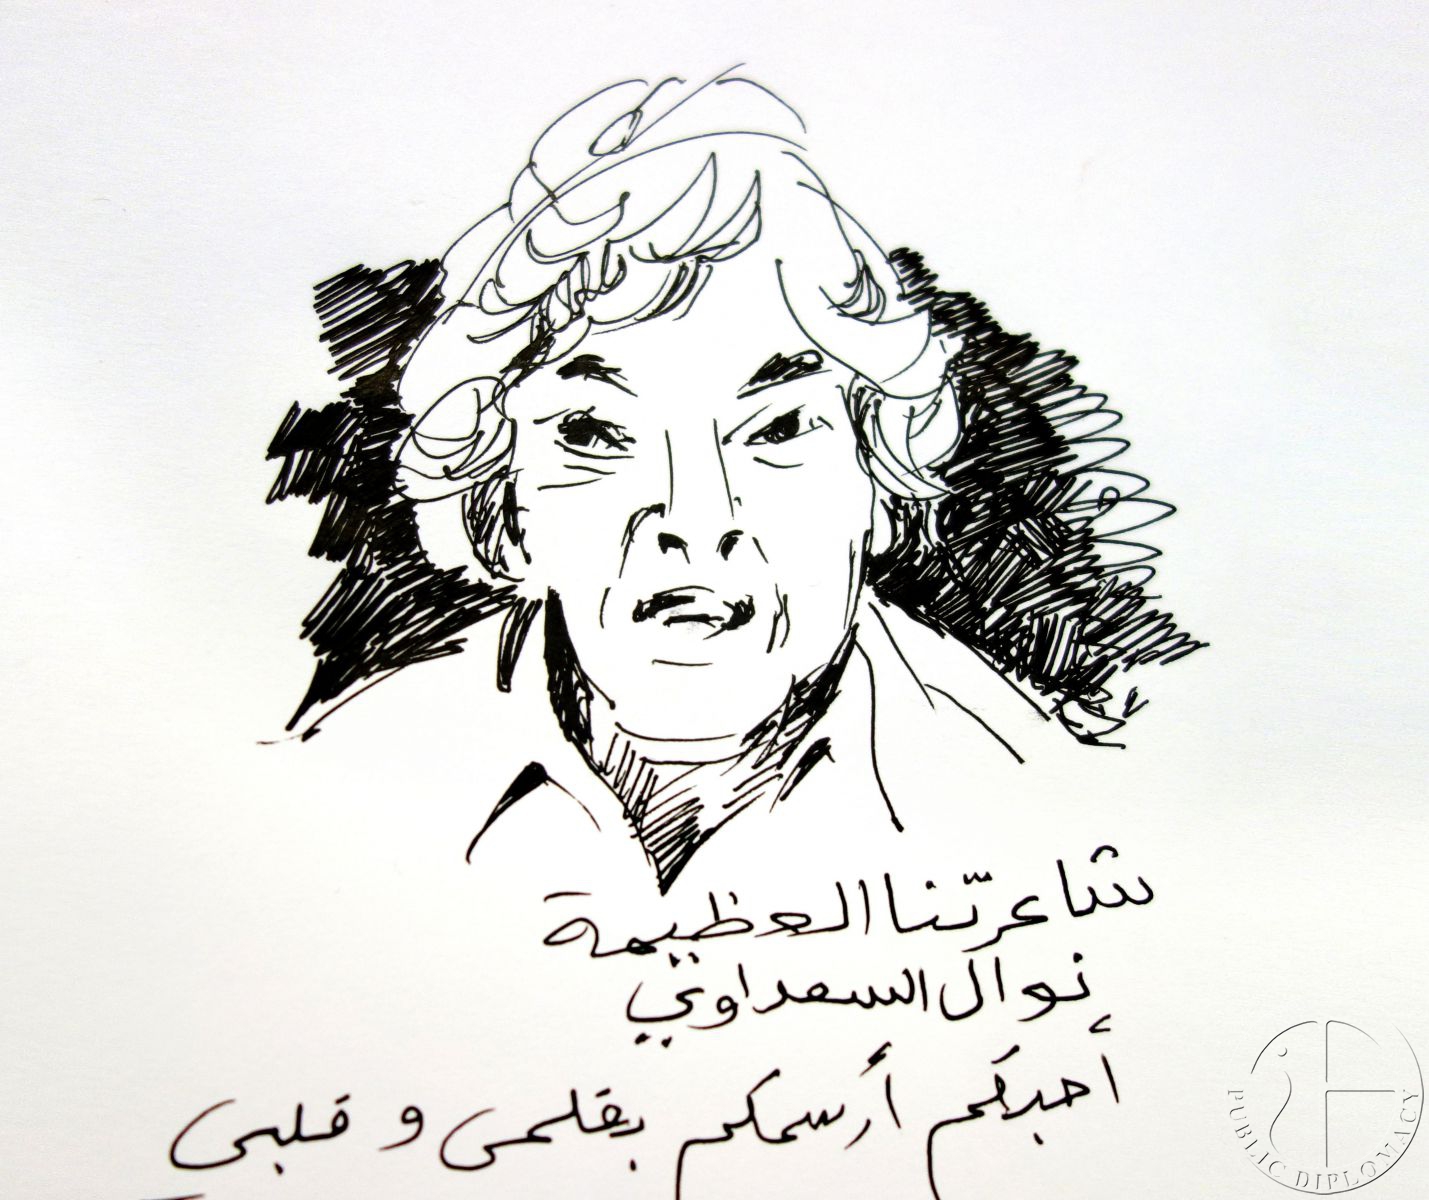 شاعرتّنا العظيمة
نوال السعداوي
أحبكم أرسمكم بقلمي و قلبي
PUBLIC DIPLOMACY